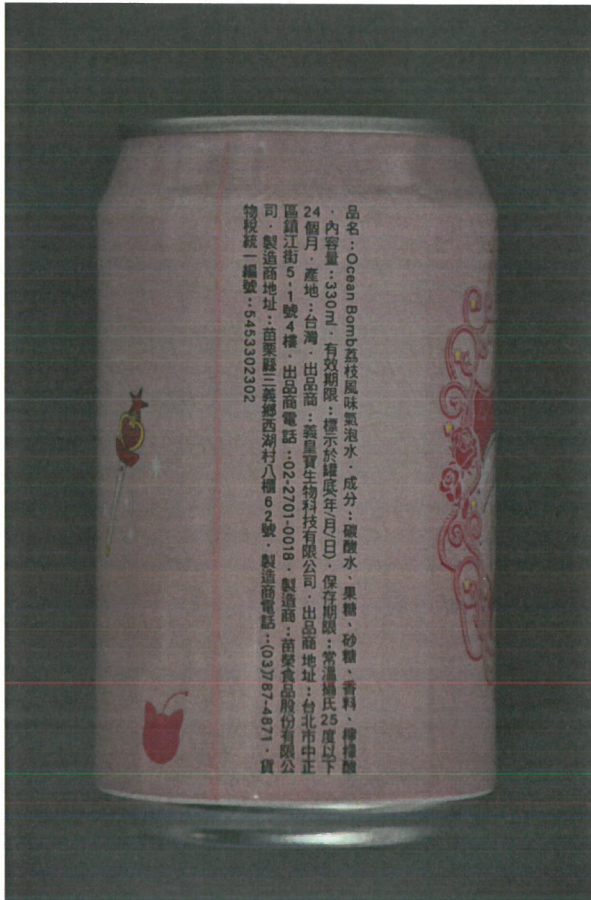 品名：Ocean Bomb荔枝風味氣泡水．成分：碳酸水、果糖、砂糖、香料、檸檬酸
．內容量：330㎖．有效期限：標示於罐底(年/月/日)．保存期限：常溫攝氏25度以下
24個月．產地：台灣．出品商：義皇寶生物科技有限公司．出品商地址：台北市中正
區鎮江街5-1號4樓．出品商電話：02-2701-0018．製造商：苗榮食品股份有限公
司．製造商地址：苗栗縣三義鄉西湖村八櫃62號．製造商電話：(03)787-4871．貨
物稅統一編號：5453302302